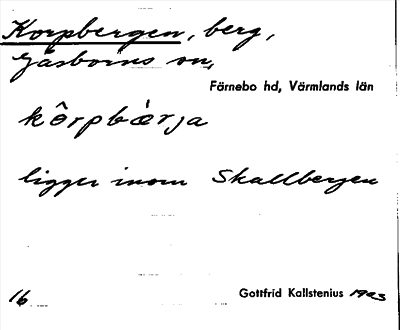 Korpbergen, berg,
Gåsborns sn,
Färnebo hd, Värmlands län
kôrpbàrja
ligger inom Skallbergen
16 Gottfrid Kallstenius 1923